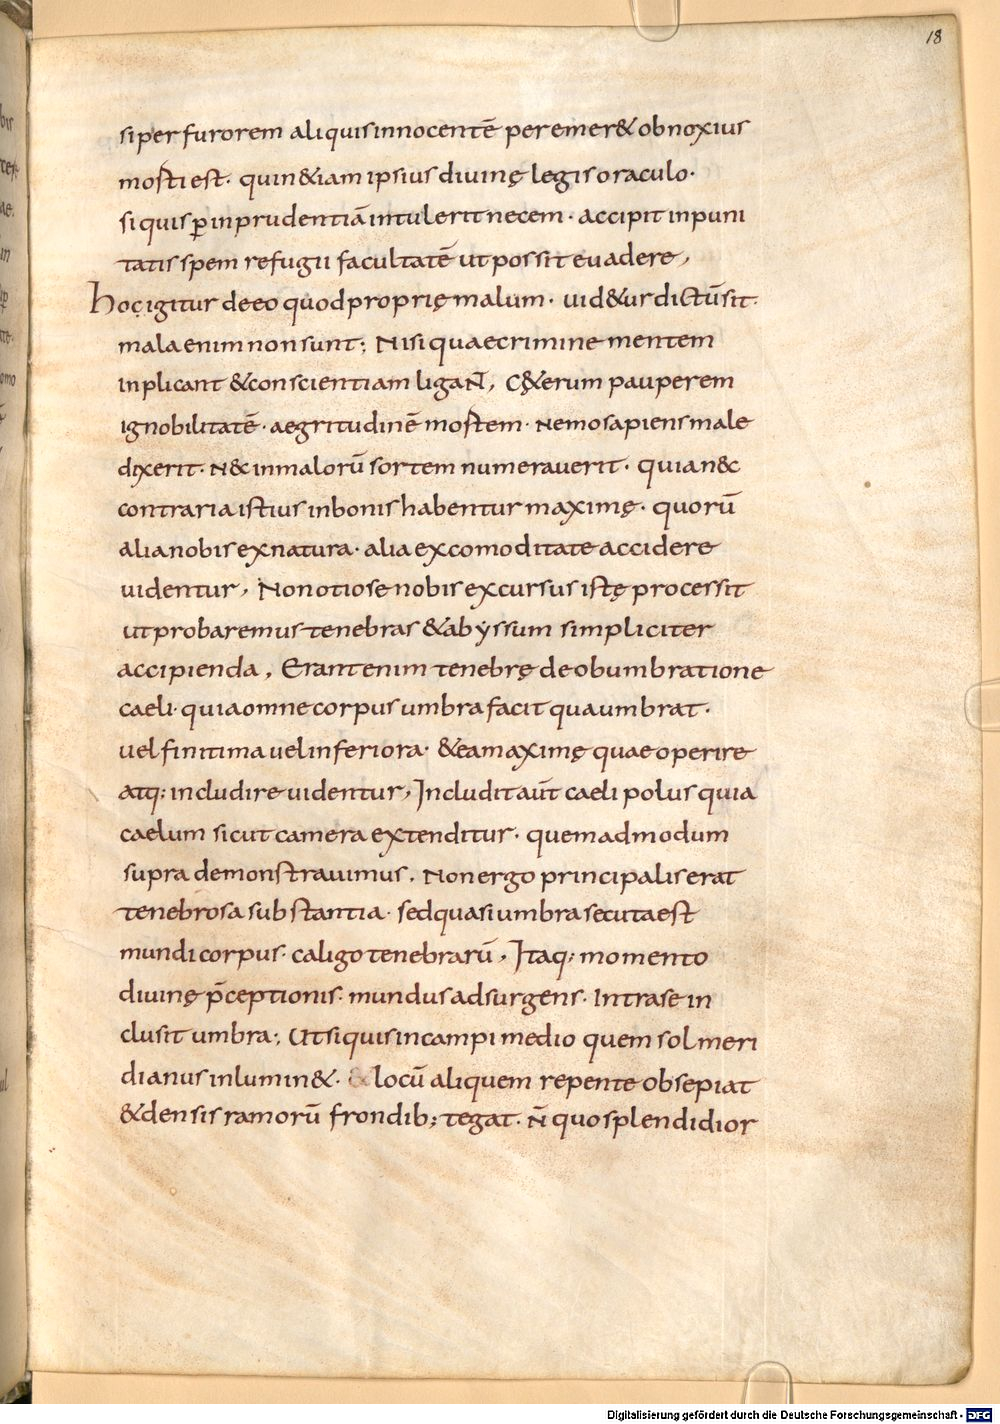 18
si per furorem aliquis innocentē peremer& obnoxius
mosti est· quin &iam ipsius diuinę legis oraculo·
si quis ꝑ inprudentiā intulerit necem· accipit inpuni
tatis spem refugii facultatē ut possit euadere,
hoc igitur de eo quod proprię malum· uid&ur dictū sit·
mala enim non sunt; Nisi quae crimine mentem
inplicant &conscientiam ligaN̄, C&̨erum pauperem
ignobilitatē· aegritudinē mortem· nemo sapiens male
dixerit· N& in malorū sortem numerauerit· quia n&c
contraria istius in bonis habentur maximę· quorū
alia nobis ex natura· alia ex comoditate accidere
uidentur, Non otiose nobis excursus istę processit
ut probaremus tenebras &abẏssum simpliciter
accipienda, Erant enim tenebrę de obumbratione
caeli· quia omne corpus umbra facit qua umbrat·
uel finitima uel inferiora· &ea maximę quae operire
atq; includire uidentur, Includit aūt caeli polus quia
caelum sicut camera extenditur· quemadmodum
supra demonstrauimus. Non ergo principalis erat
tenebrosa substantia· sed quasi umbra secuta est
mundi corpus· caligo tenebrarū, Itaq; momento
diuinę p̄ceptionis· mundus adsurgens· Intra se in
clusit umbra; Ut si quis in campi medio quem sol meri
dianus inlumin&· locū aliquem repente obsepiat
&densis ramorū frondib; tegat· N̄ quo splendidior
Digitalisierung gefördert durch die Deutsche Forschungsgemeinschaft - DFG